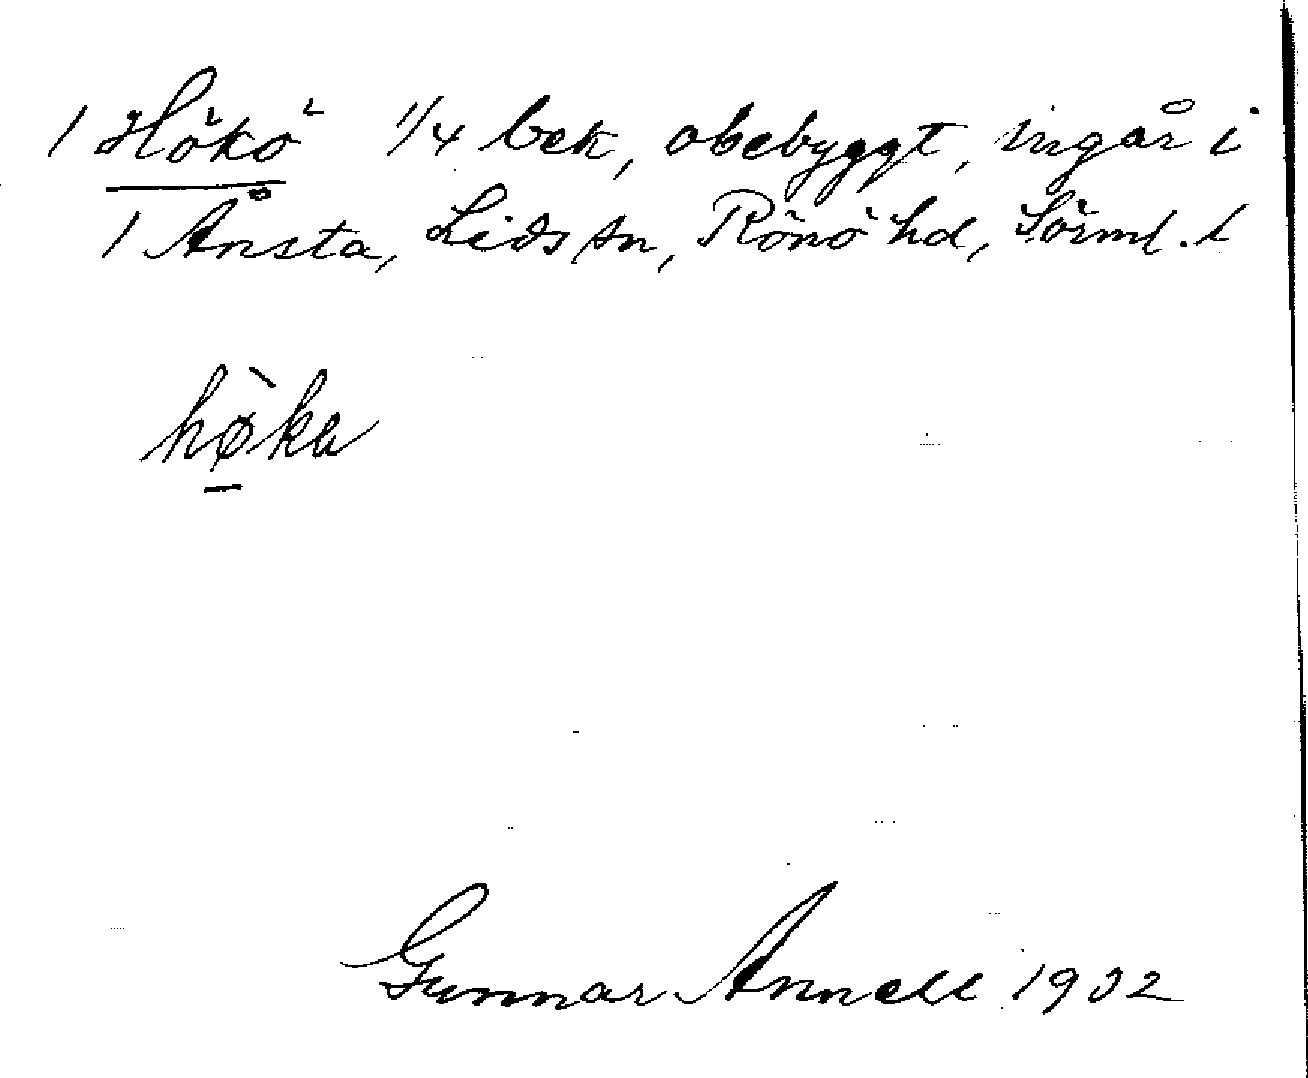 1 Hökö 1/4 bek, obebyggt, ingår i
1 Ånsta, Lids sn, Rönö hd, Sörml. l
hø̀ka
Gunnar Annell 1932